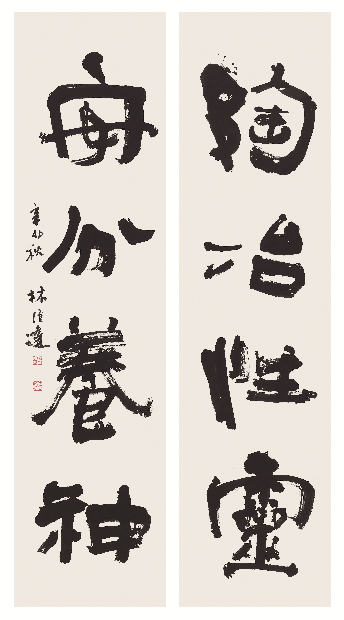 陶冶性靈
安分養神
辛卯秋 林